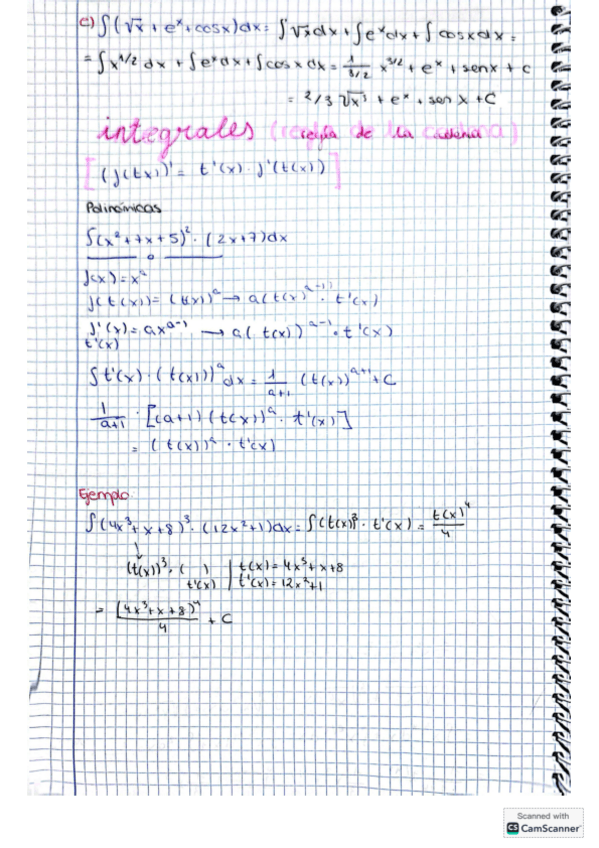 c) ∫(√x + eˣ + cosx)dx = ∫√x dx + ∫eˣdx + ∫cosxdx =
= ∫x^1/2 dx + ∫eˣdx + ∫cos x dx = 1/(3/2) x^3/2 + eˣ + senx + c
= 2/3 √x³ + eˣ + sen x + C
integrales (regla de la cadena)
[(f(t(x))' = t'(x) · f'(t(x))]
Polinómicas
∫(x² + 7x + 5)² · (2x+7)dx
f(x) = xᵃ
f(t(x)) = (t(x))ᵃ → a(t(x)ᵃ⁻¹⁾ · t'(x)
f'(x) = axᵃ⁻¹ → a(t(x))ᵃ⁻¹ · t'(x)
t'(x)
∫t'(x) · (t(x))ᵃ dx = 1/(a+1) (t(x))ᵃ⁺¹ + C
1/(a+1) · [(a+1)(t(x))ᵃ · t'(x)]
= (t(x))ᵃ · t'(x)
Ejemplo
∫(4x³ + x + 8)³ · (12x² + 1)dx = ∫(t(x))³ · t'(x) = t(x)⁴/4
↓
(t(x))³ · ( ) | t(x) = 4x³ + x + 8
t'(x) | t'(x) = 12x² + 1
= (4x³ + x + 8)⁴/4 + C
Scanned with
CS CamScanner